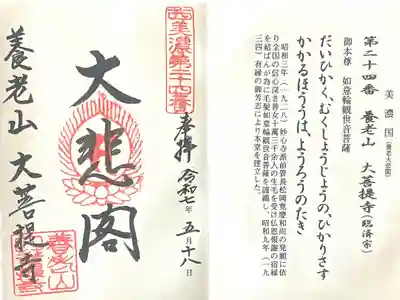 美濃国
第二十四番 養老山 大菩提寺(臨済宗)
だいひかく、むくしょうじょうの、ひかりさす
かかるほううは、ようろうのたき
御本尊 如意輪観世音菩薩
昭和三年(一九二八)妙心寺派前管長松岡寛慶和尚の発願に依
り全国の信心深き善女十萬三千余人の生毛を受け仏恩報謝の宿縁
を結ばんが為に毛髪如意輪観世音菩薩を謹織し、昭和九年(一九
三四)有縁の御芳志により本堂を建立した。
西美濃第二十四番
奉拝 令和七年 五月十八日
大悲閣
養老山 大菩提寺
養老山